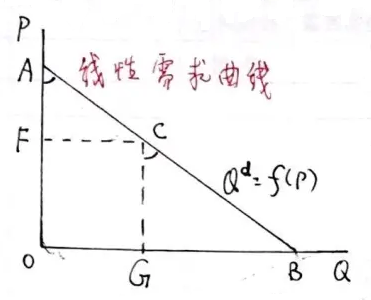 P
A 线性需求曲线
F C
Qᵈ=f(P)
O G B Q